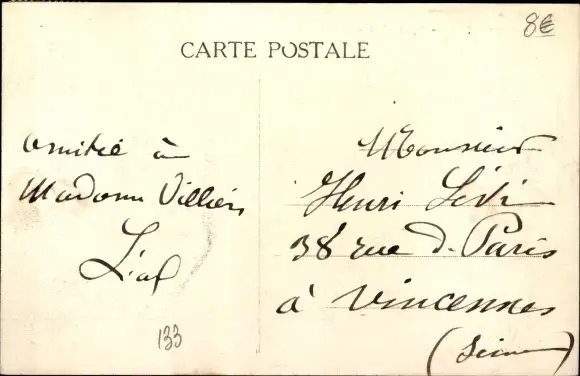 CARTE POSTALE
8€
Amitié à
Madame Villiers
133
Monsieur
Henri Lévi
38 rue d. Paris
à Vincennes
(Seine)